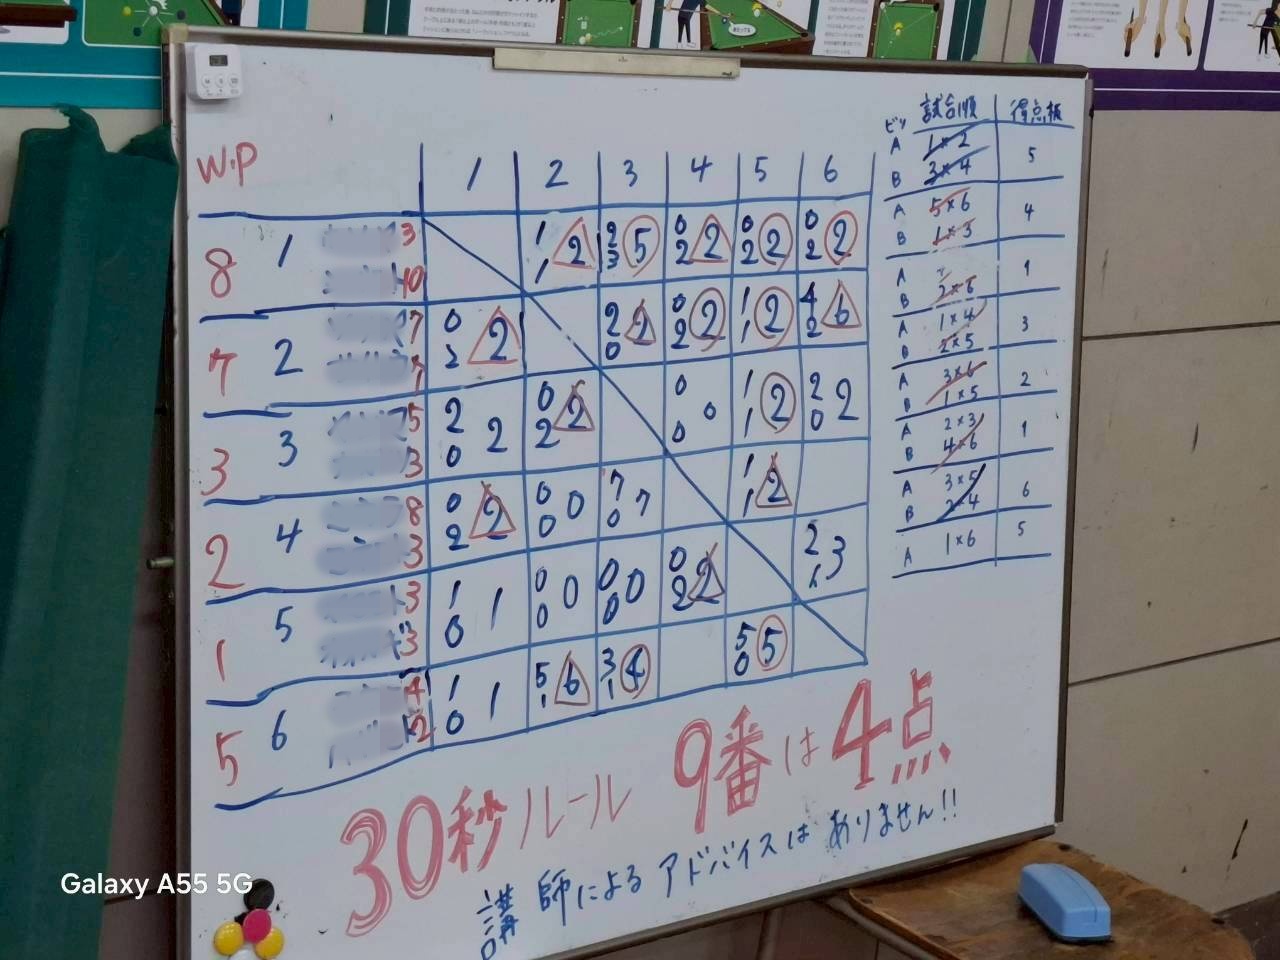 W.P
1 2 3 4 5 6
8 1 3 10 1 1 2 2 3 5 0 2 2 0 2 2 0 2 2
7 2 7 7 0 2 2 2 0 2 0 2 2 1 1 2 4 2 6
3 3 5 3 2 0 2 0 2 2 0 0 0 1 1 2 2 0 2
2 4 8 3 0 2 2 0 0 0 7 0 7 1 1 2
1 5 3 3 1 0 1 0 0 0 0 0 0 0 2 2 2 1 3
5 6 4 2 1 0 1 5 1 6 3 1 4 5 0 5
試合順 得点板
A 1×2 5
B 3×4
A 5×6 4
B 1×3
A 1
B 2×6
A 1×4 3
B 2×5
A 3×6 2
B 1×5
A 2×3 1
B 4×6
A 3×5 6
B 2×4
A 1×6 5
30秒ルール 9番は4点
講師によるアドバイスはありません!!
Galaxy A55 5G